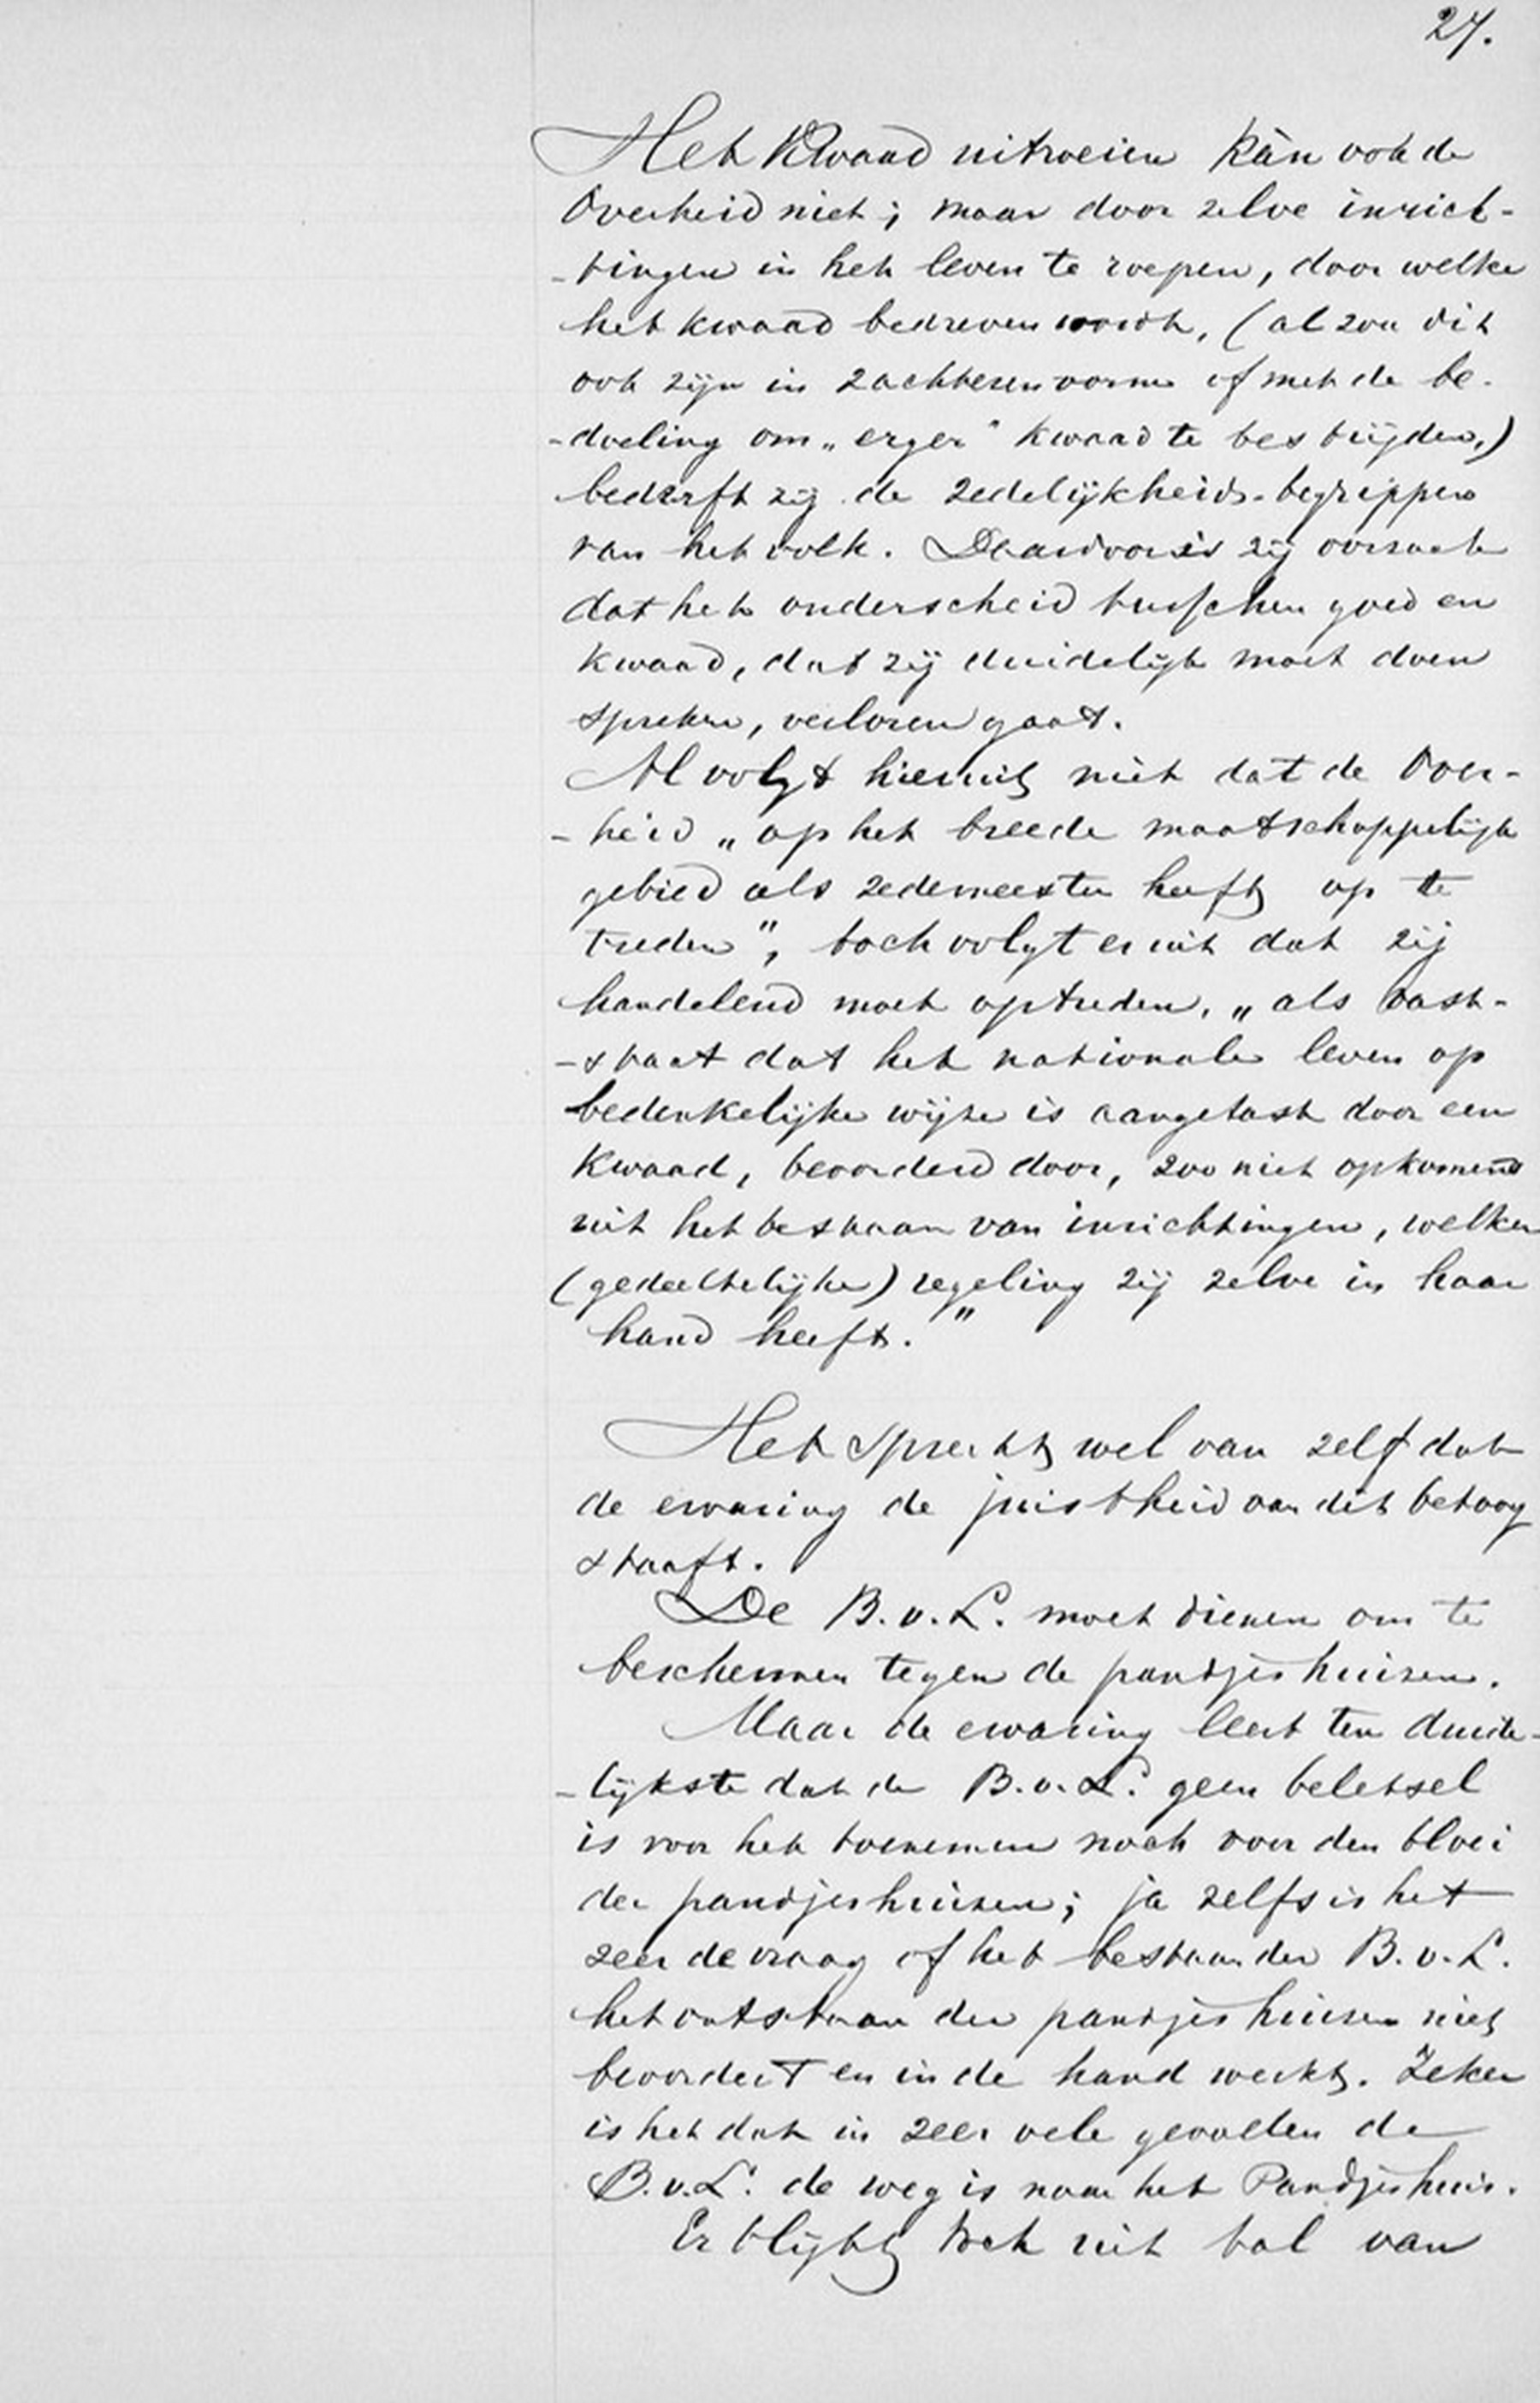 27.
Het Kwaad uitroeien kàn ook de
Overheid niet; maar door zelve inrich-
-tingen in het leven te roepen, door welke
het kwaad bedreven wordt, (al zou dit
ook zijn in zachteren vorm of met de be-
-doeling om „erger" kwaad te bestrijden,)
bederft zij de zedelijkheids-begrippen
van het volk. Daardoor is zij oorzaak
dat het onderscheid tusschen goed en
kwaad, dat zij duidelijk moet doen
spreken, verloren gaat.
Al volgt hieruit niet dat de Over-
-heid „op het breede maatschappelijk
gebied als zedemeester heeft op te
treden", toch volgt er uit dat zij
handelend moet optreden, „als vast-
-staat dat het nationale leven op
bedenkelijke wijze is aangetast door een
Kwaad, bevorderd door, zoo niet opkomend
uit het bestaan van inrichtingen, welker
(gedeeltelijke) regeling zij zelve in haar
hand heeft."
Het spreekt wel van zelf dat
de ervaring de juistheid van dit betoog
staaft.
De B.v.L. moet dienen om te
beschermen tegen de pandjeshuizen.
Maar de ervaring leert ten duide-
-lijkste dat de B.v.L. geen beletsel
is voor het toenemen noch voor den bloei
der pandjeshuizen; ja zelfs is het
zeer de vraag of het bestaan der B.v.L.
het ontstaan der pandjeshuizen niet
bevordert en in de hand werkt. Zeker
is het dat in zeer vele gevallen de
B.v.L. de weg is naar het Pandjeshuis.
Er blijkt toch uit tal van